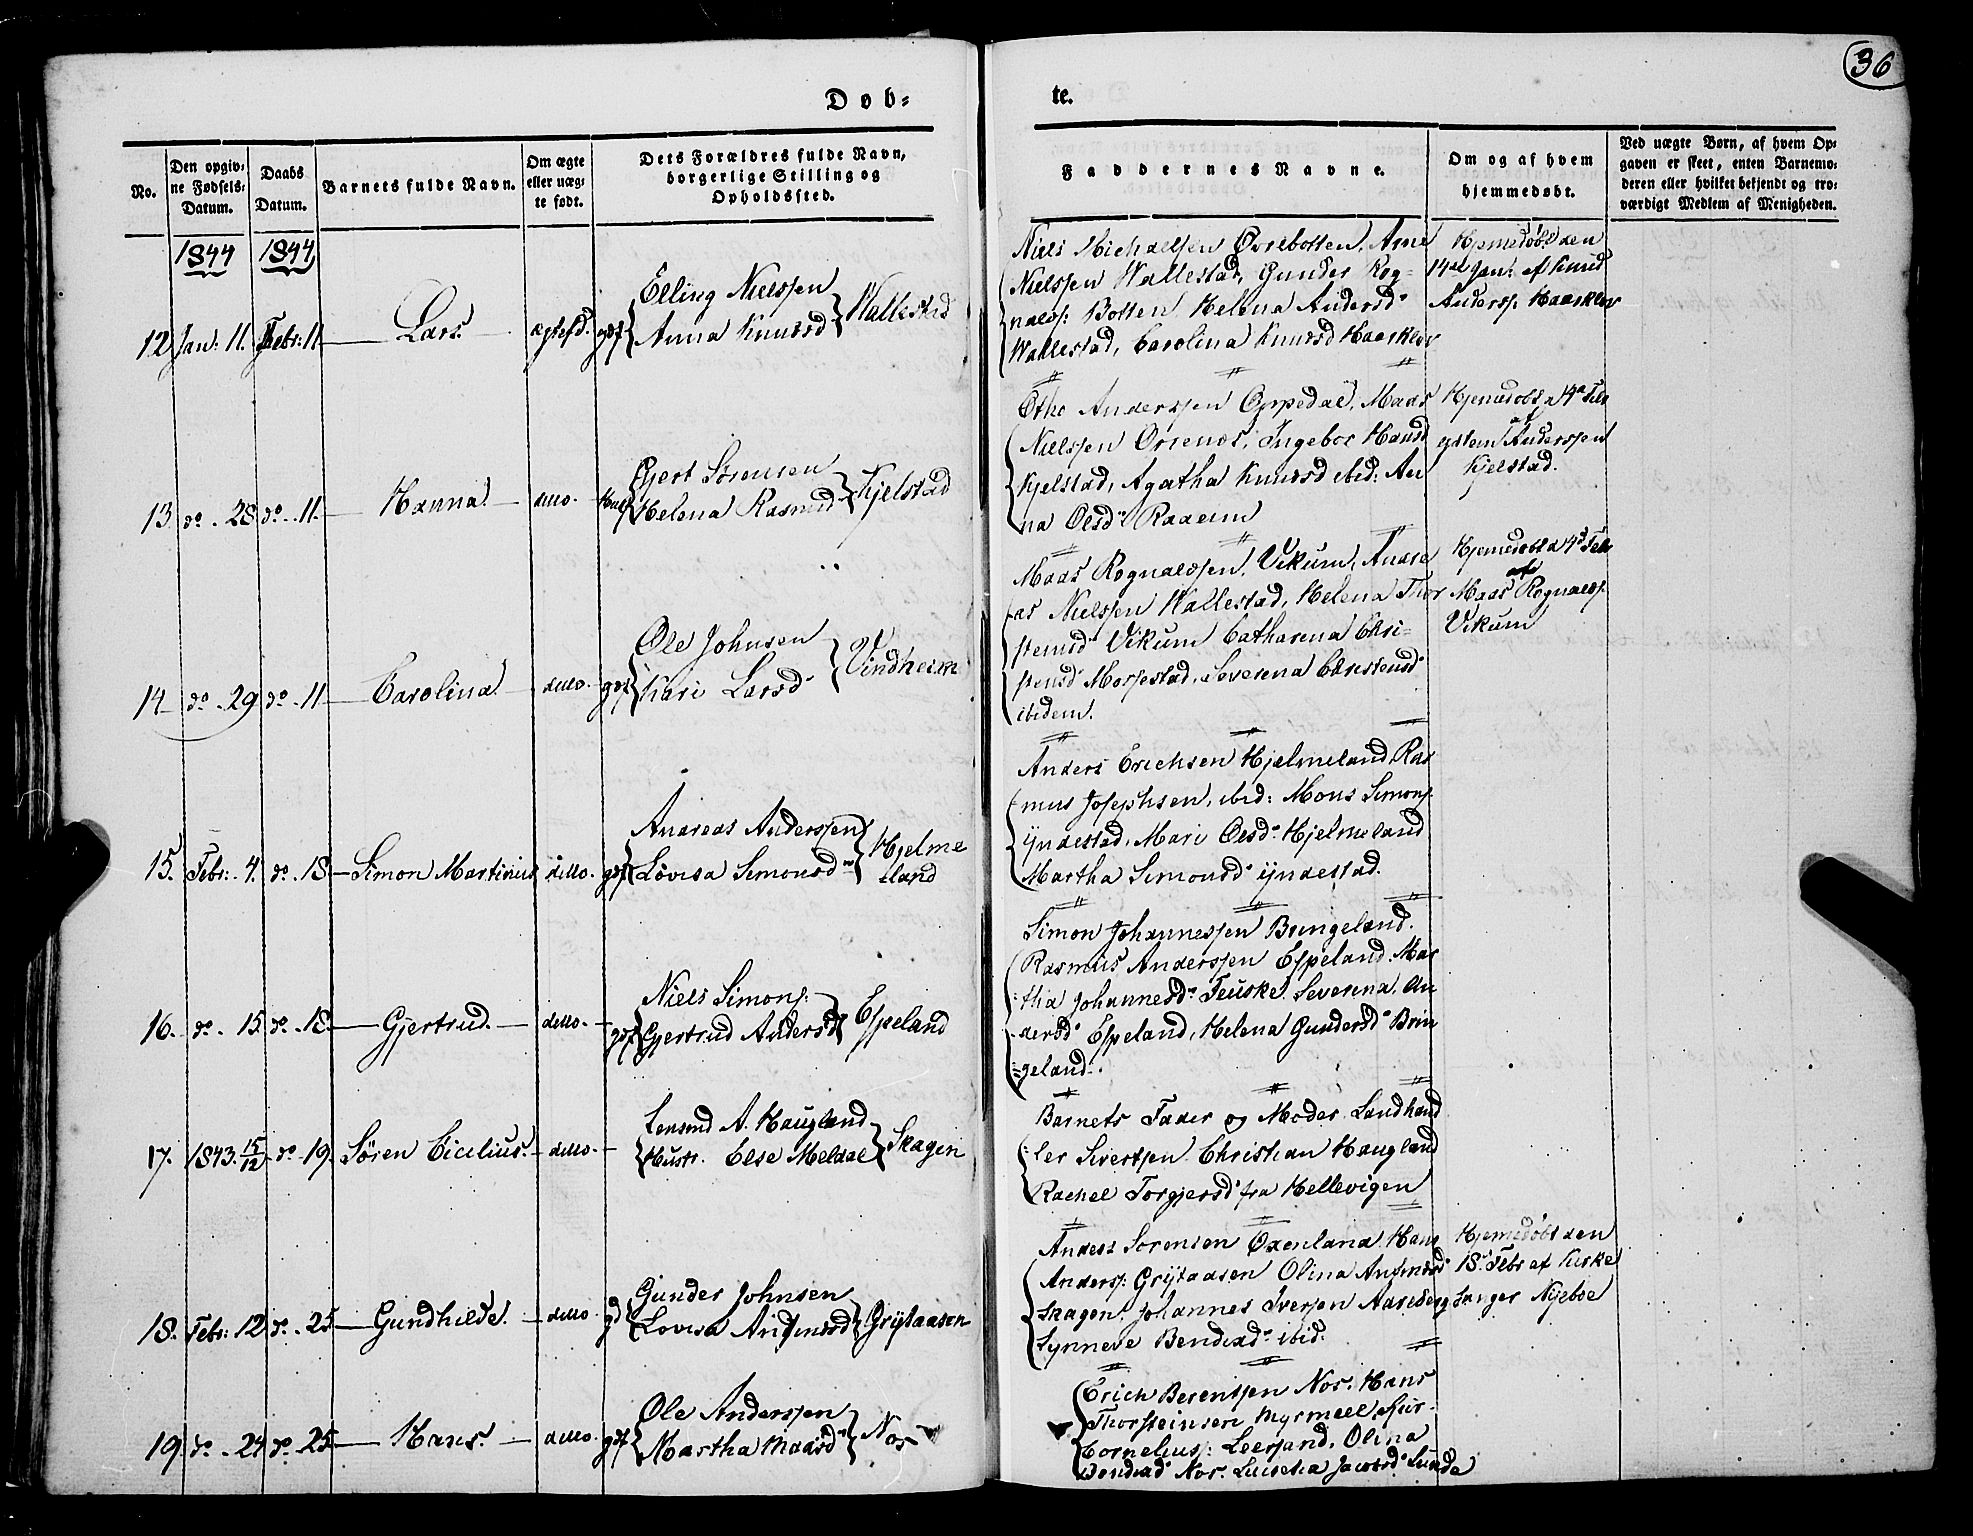 36
Døb-
te.
No.
Den opgiv-
ne Fødsels-
Datum.
Daabs
Datum.
Barnets fulde Navn.
Om ægte
eller uæg-
te født.
Dets Forældres fulde Navn,
borgerlige Stilling og
Opholdssted.
Faddernes Navne.
Om og af hvem
hjemmedøbt.
Ved uægte Børn, af hvem Op-
gaven er skeet, enten Barnemo-
deren eller hvilket bekjendt og tro-
værdigt Medlem af Menigheden.
1844 1844
12 Jan: 11. Febr: 11 Lars ægtefd. gdf
Elling Nielssen
Anna Knudsd
Wallestad
Niels Michaelsen Øvrebotten, Arne
Nielssen Wallestad, Gunder Rog-
nalds: Botten Helena Andersdr
Wallestad, Carolina Knudsd Haarklov
Hjemdøbt den
14de Jan: af Knud
Anders: Haarklov
13 do. 28 do. 11. Hanna. ditto.
Gjert Sørensen
Helena Rasmusd
Kjelstad
Otho Anderssen Oppedal, Maas
Nielssen Ørsenos, Ingebor Hansd
Kjelstad, Agatha Knudsd ibid: An
na Olsdr Raaeim
Hjemdøbt d 4de Feb
af
gstein Anderssen
Kjelstad.
14 do. 29 do. 11 Carolina ditto. gdf
Ole Johnsen
Kari Larsdr
Vindheim
Maas Rognaldsen, Vikum, Andre
as Nielssen Wallestad, Helena Thor
stensdr Vikum Catharina Chri-
stensdr Morsestad, Severena Christensdr
ibidem.
Hjemdøbt d 4de Feb
af
Maas Rognalds.
Vikum
15. Febr: 4. do. 18. Simon Martinius ditto. gdf
Andreas Anderssen
Lovisa Simonsdr
Hjelme
land
Anders Erichsen Hjelmeland, Ras
mus Josephsen, ibid: Mons Simons.
Yndestad, Mari Olsdr Hjelmeland
Martha Simonsdr Yndestad.
16. do. 15. do. 18. Gjertrud. ditto. gdf
Niels Simons.
Gjertrud Andersd
Espeland
Simon Johannessen Bringeland.
Rasmus Anderssen Espeland. Mar
tha Johannesdr Teuske. Severena An
dersdr Espeland, Helena Gundersdr Brin
geland.
17. 1843. 15/12 do. 19. Søren Cicelius. ditto.
Lensmd A. Haugland
Hustr. Else Meldal
Skagen
Barnets Fader og Moder Landhand
ler Sivertsen Christian Haugland
Rachel Torgjersdr fra Hellevigen
18. Febr: 12 do. 25 Gundhilde. ditto. gd
Gunder Johnsen
Lovisa
Grytaasen
Anders Sorensen Oxenland Hans
Anders: Grytaasen Olina
Skagen, Johannes Iversen Aareberg
Synneve Bendixdr ibid:
Hjemdøbt den
18 Febr af Kirke
sanger Nyeboe
19 do. 24 do. 25 Hans. ditto. gdf
Ole Anderssen
Martha Maasdr
Nos
Erich Berentsen Nos. Hans
Thorsteinsen Myrmeel,
Cornelius: Leersand, Olina
Bendixdr Nos. Jacobsdr Sunde